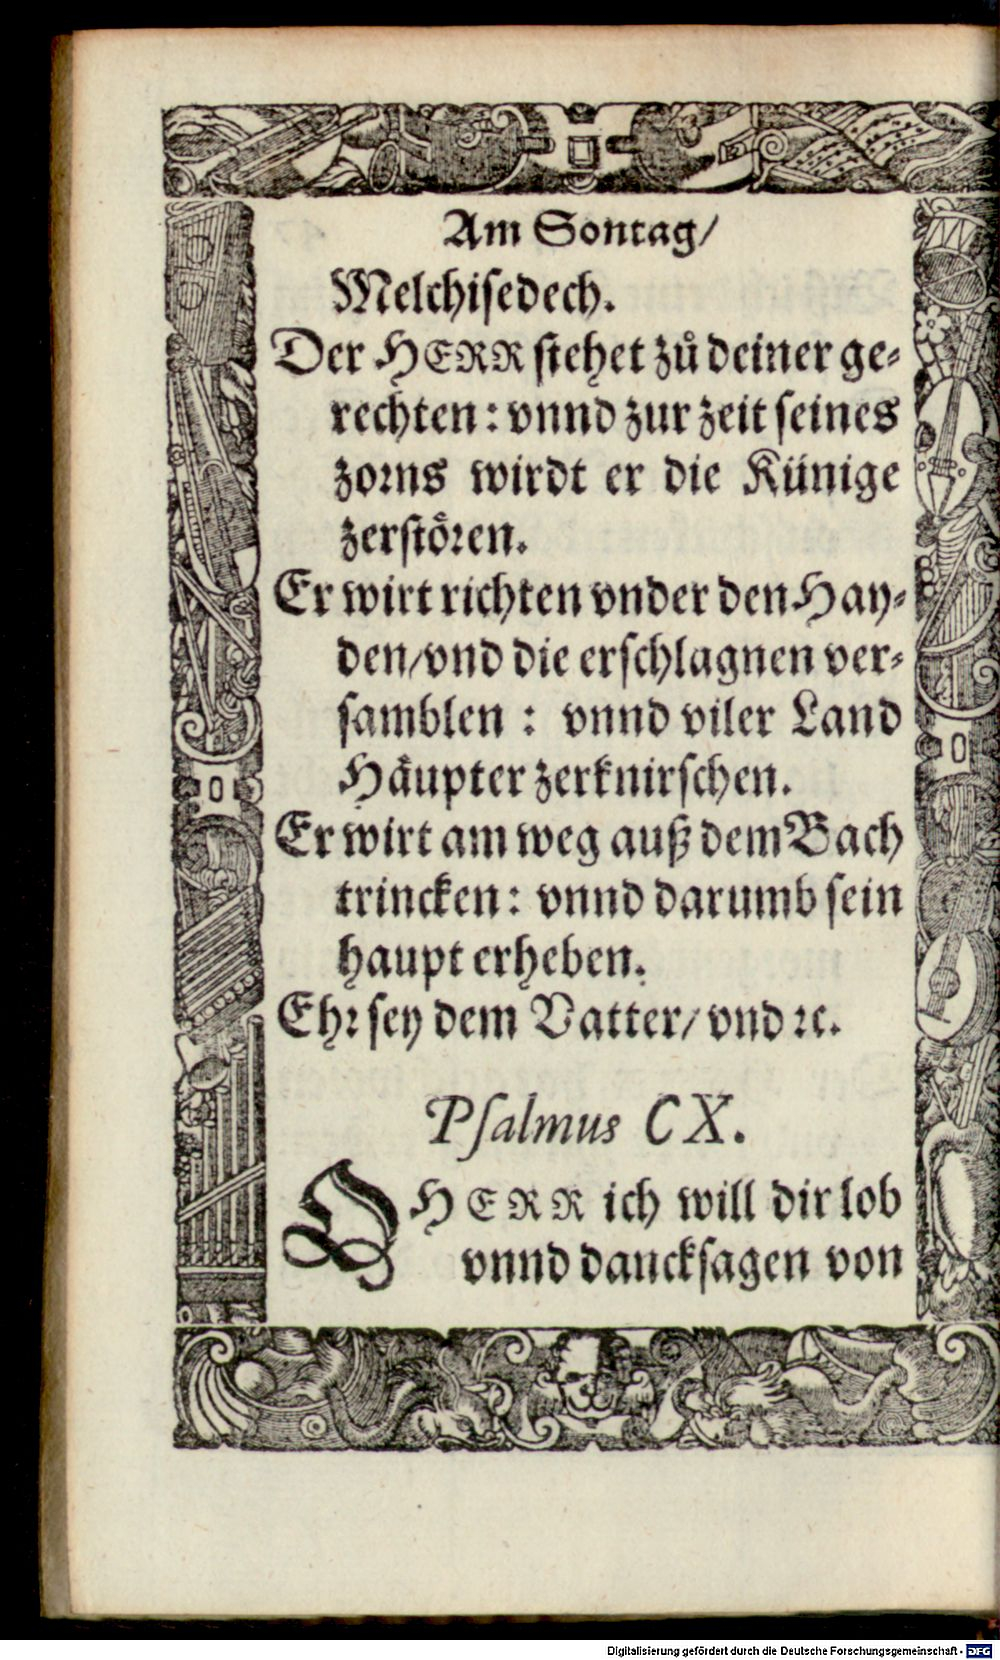 Am Sontag/
Melchisedech.
Der HERR stehet zů deiner ge-
rechten: vnnd zur zeit seines
zorns wirdt er die Künige
zerstören.
Er wirt richten vnder den Hay-
den/vnd die erschlagnen ver-
samblen : vnnd viler Land
Häupter zerknirschen.
Er wirt am weg auß dem Bach
trincken: vnnd darumb sein
haupt erheben.
Ehr sey dem Vatter/ vnd ꝛc.
Psalmus CX.
O HERR ich will dir lob
vnnd dancksagen von
Digitalisierung gefördert durch die Deutsche Forschungsgemeinschaft - DFG